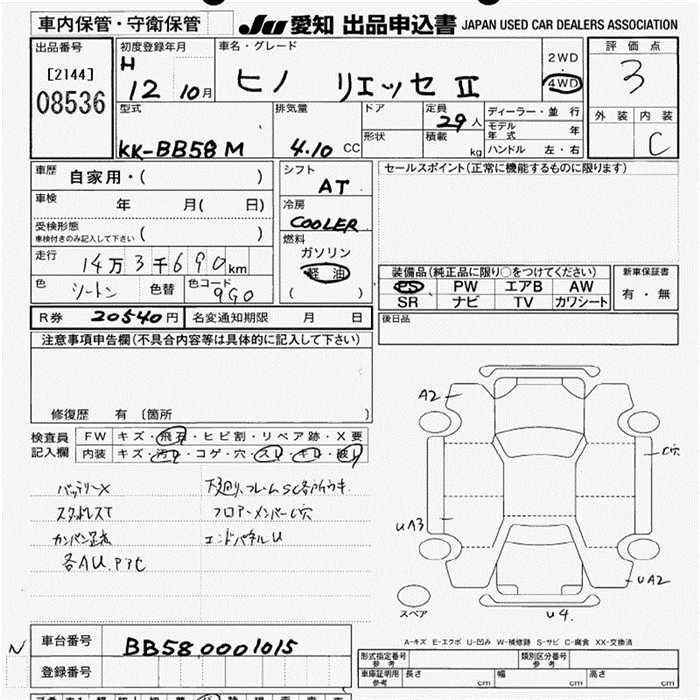 車内保管・守衛保管
JU 愛知 出品申込書 JAPAN USED CAR DEALERS ASSOCIATION
出品番号
[2144]
08536
初度登録年月
H
12 10月
車名・グレード
ヒノ リエッセⅡ
2WD
4WD
評価点
3
外装 内装
C
型式
KK-BB58M
排気量
4.10 CC
ドア
形状
定員
29人
積載
kg
ディーラー・並行
モデル年式 年
ハンドル 左・右
車歴
自家用・( )
車検
年 月( 日)
受検形態
車検付きのみ記入して下さい ( )
走行
14万3千690km
色
シートン
色替
色コード
9G0
シフト
AT
冷房
COOLER
燃料
ガソリン
軽油
( )
セールスポイント(正常に機能するものに限ります)
装備品(純正品に限り○をつけてください)
PS PW エアB AW
SR ナビ TV カワシート
新車保証書
有・無
R券 20540円
名変通知期限 月 日
後日品
注意事項申告欄(不具合内容等は具体的に記入して下さい)
修復歴 有 〔箇所 〕
検査員
記入欄
FW キズ・飛石・ヒビ割・リペア跡・X要
内装 キズ・汚レ・コゲ・穴・スレ・キレ・破レ
バッテリーX
スタッドレスT
カンバン跡
各AU.
下廻り、フレームSC各所ウキ
フロアーメンバーC穴
エンドパネルU
A2
C穴
UA3
UA2
U4.
スペア
A-キズ E-エクボ U-凹み W-補修跡 S-サビ C-腐食 XX-交換済
N
車台番号
BB580001015
登録番号
形式指定番号
参考
類別区分番号
参考
車庫証明用
参考
長さ cm
幅 cm
高さ cm